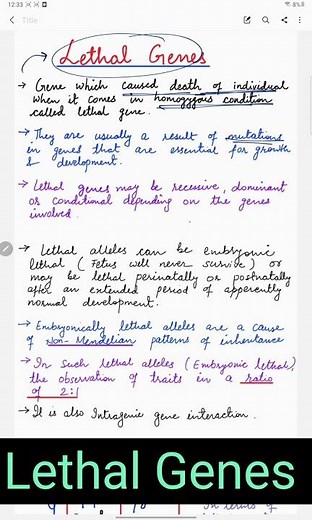 12:33
8%
Title
Lethal Genes
→ Gene which caused death of individual
when it comes in homozygous condition
called lethal gene.
→ They are usually a result of mutations
in genes that are essential for growth
& development.
→ Lethal genes may be recessive, dominant
or conditional depending on the genes
involved.
→ Lethal alleles can be embryonic
lethal (Fetus will never survive) or
may be lethal perinatally or postnatally
after an extended period of apparently
normal development.
→ Embryonically lethal alleles are a cause
of Non-Mendelian patterns of inheritance
→ In such lethal alleles (Embryonic lethal)
the observation of traits in a ratio
of 2:1
→ It is also Intragenic gene interaction.
Lethal Genes
In terms of